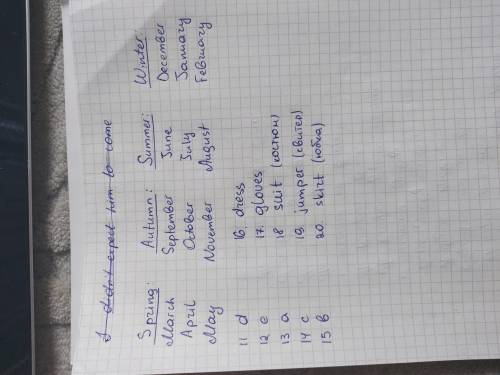 I didn't expect him to come
Spring: Autumn: Summer: Winter:
March September June December
April October July January
May November August February
11 d 16. dress
12 e 17. gloves
13 a 18 suit (костюм)
14 c 19. jumper (свитер)
15 b 20. skirt (юбка)